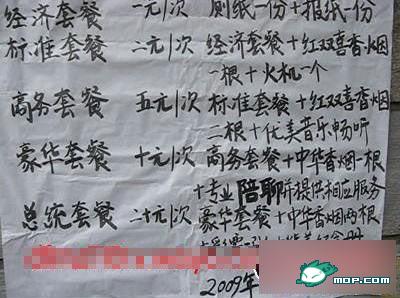 经济套餐 一元/次 厕纸一份+报纸一份
标准套餐 二元/次 经济套餐+红双喜香烟
一根+火机一个
商务套餐 五元/次 标准套餐+红双喜香烟
二根+优美音乐畅听
豪华套餐 十元/次 商务套餐+中华香烟一根
+专业陪聊并提供相应服务
总统套餐 二十元/次 豪华套餐+中华香烟两根
2009年
MOP.COM